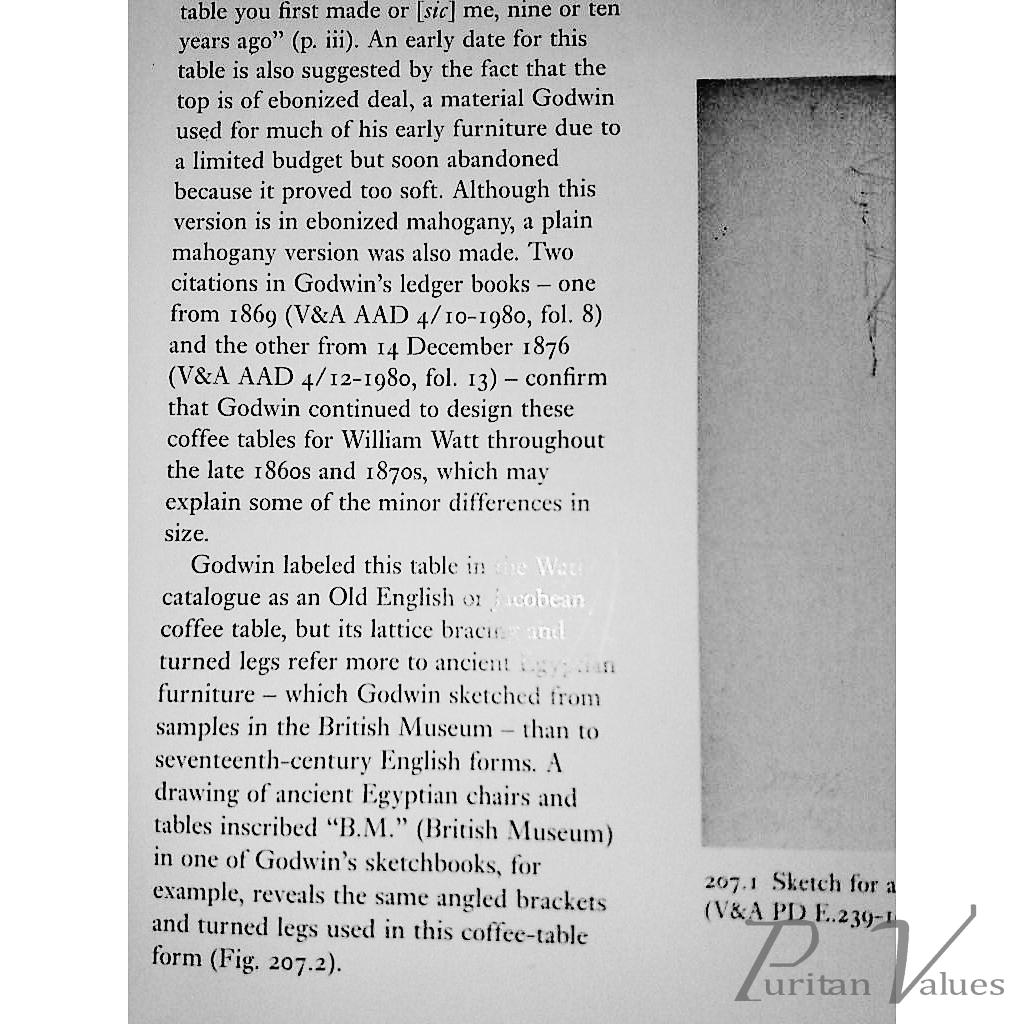 table you first made or [sic] me, nine or ten
years ago” (p. iii). An early date for this
table is also suggested by the fact that the
top is of ebonized deal, a material Godwin
used for much of his early furniture due to
a limited budget but soon abandoned
because it proved too soft. Although this
version is in ebonized mahogany, a plain
mahogany version was also made. Two
citations in Godwin’s ledger books – one
from 1869 (V&A AAD 4/10-1980, fol. 8)
and the other from 14 December 1876
(V&A AAD 4/12-1980, fol. 13) – confirm
that Godwin continued to design these
coffee tables for William Watt throughout
the late 1860s and 1870s, which may
explain some of the minor differences in
size.
Godwin labeled this table in the Watt
catalogue as an Old English or Jacobean
coffee table, but its lattice bracing and
turned legs refer more to ancient Egyptian
furniture – which Godwin sketched from
samples in the British Museum – than to
seventeenth-century English forms. A
drawing of ancient Egyptian chairs and
tables inscribed “B.M.” (British Museum)
in one of Godwin’s sketchbooks, for
example, reveals the same angled brackets
and turned legs used in this coffee-table
form (Fig. 207.2).
207.1 Sketch for a
(V&A PD E.239-1
Puritan Values